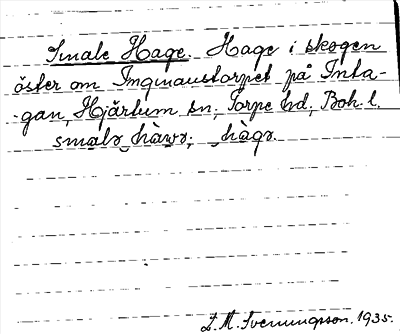 Smale Hage. Hage i skogen
öster om Ingmaustorpet på Inta-
-gan, Hjärtum sn; Torpe hd; Boh. l.
smalɘ hàwɘ; hàgɘ.
L. M. Svenungsson. 1935.